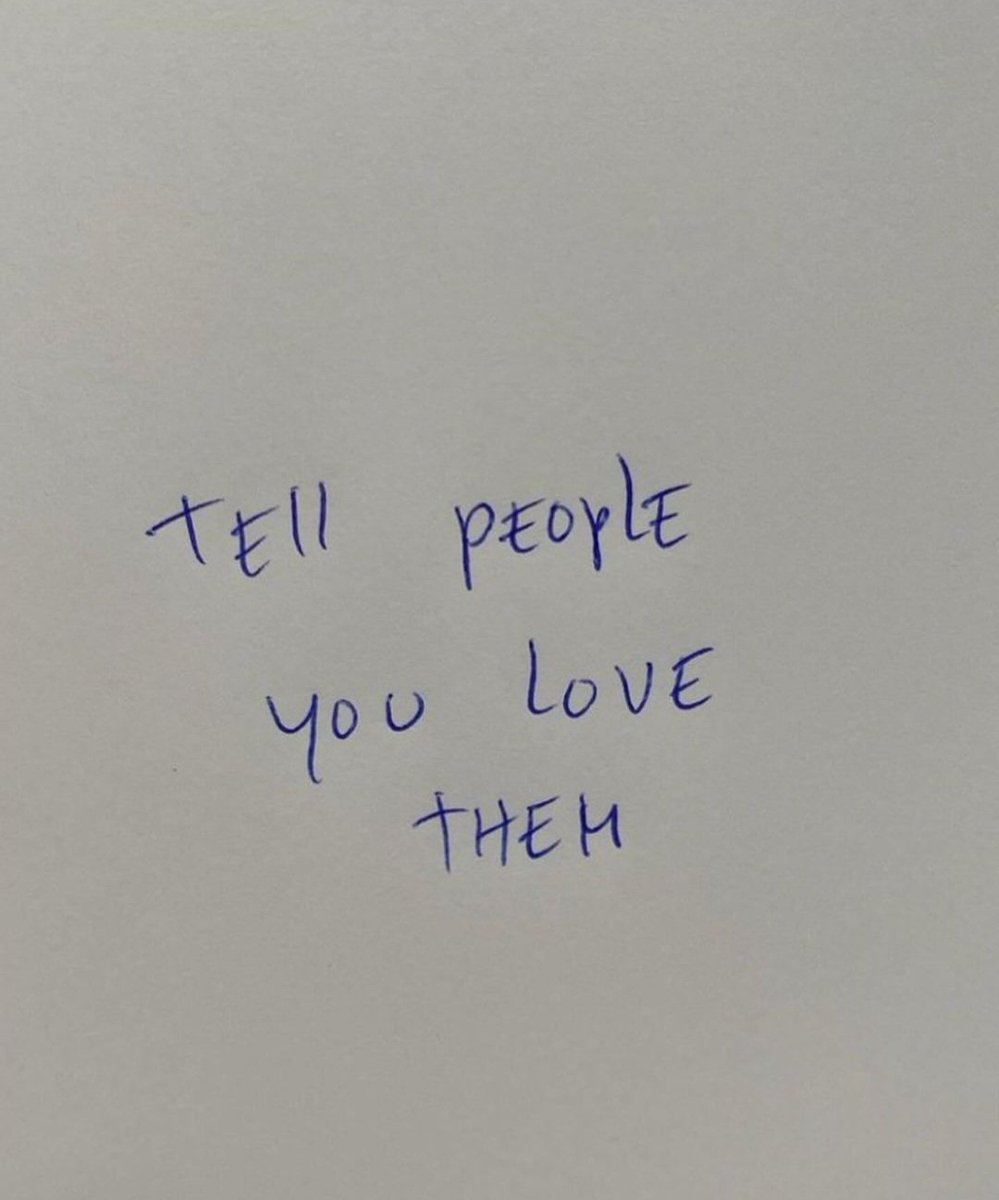 TEll PEOPlE
YOU LOVE
THEM